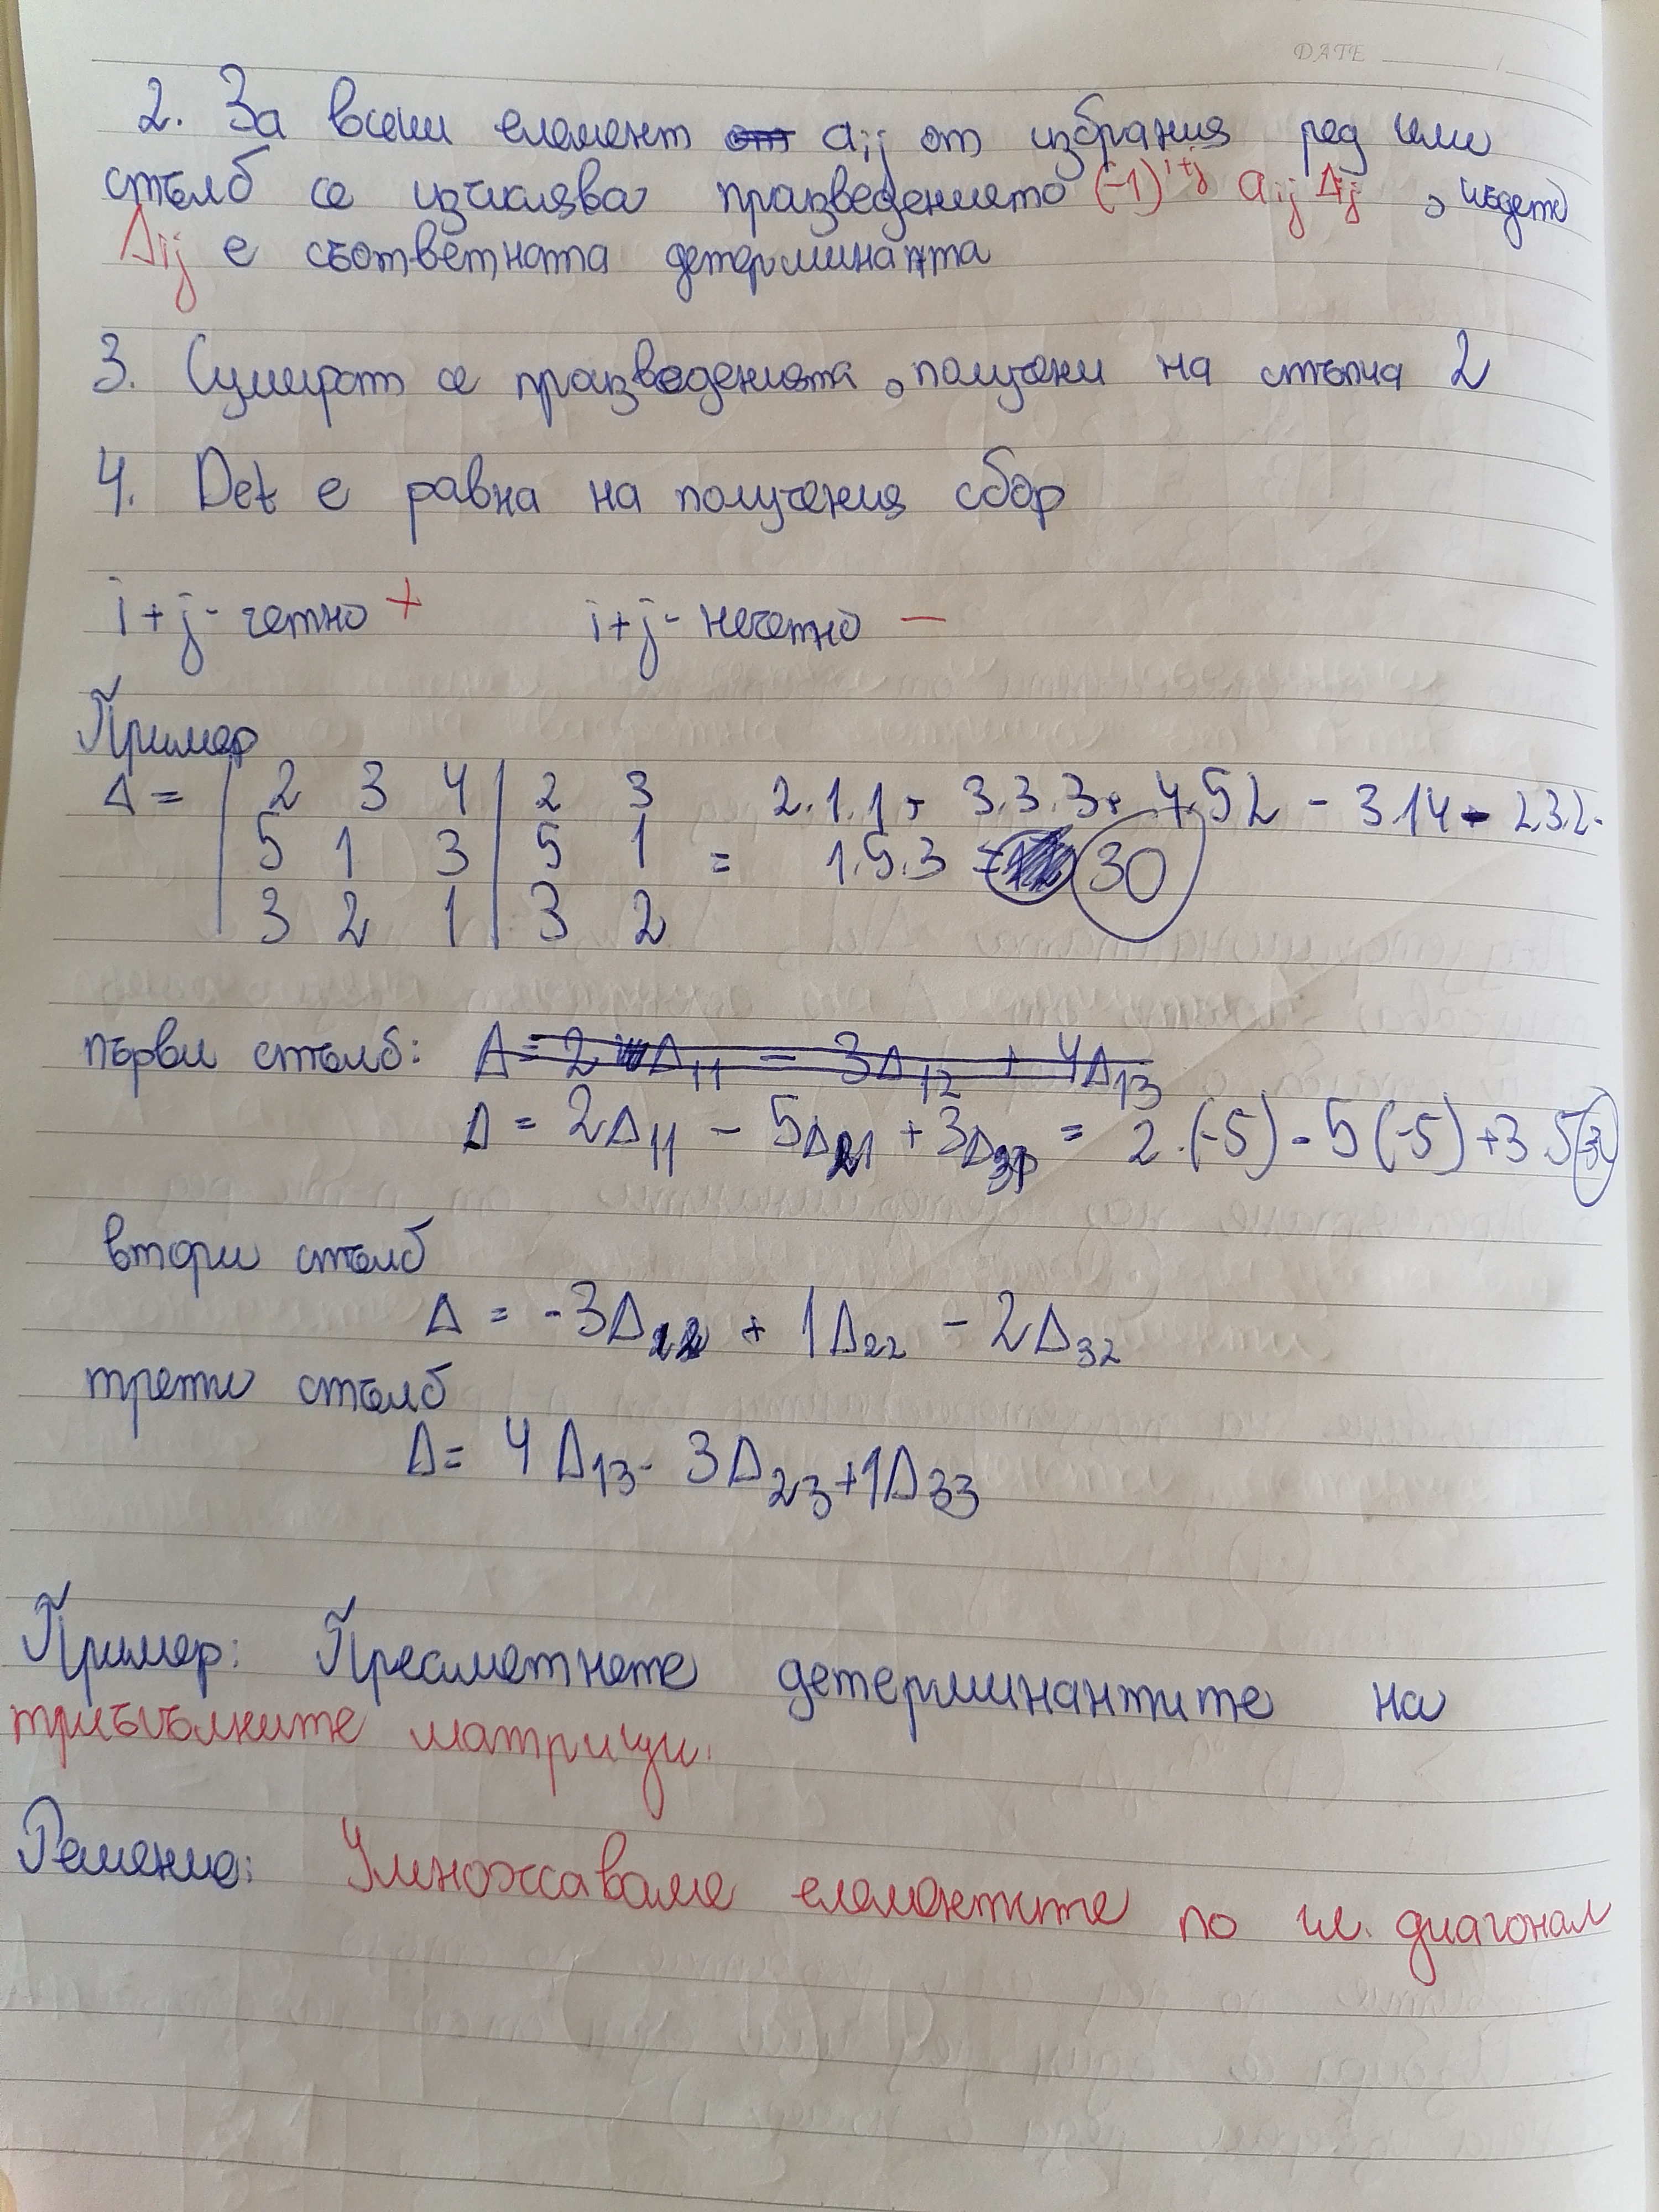 DATE
2. За всеки елемент от aij от избрания ред или
стълб се изчислява произведението (-1)^i+j aij Δij , където
Δij е съответната детерминанта
3. Сумират се произведенията, получени на стъпка 2
4. Det е равна на получения сбор
i+j - четно + i+j - нечетно -
Пример
Δ = | 2 3 4 | 2 3 2.1.1 + 3.3.3 + 4.5.2 - 3.1.4 - 2.3.2 -
5 1 3 | 5 1 = 1.5.3 = 30
3 2 1 | 3 2
първи стълб: Δ = 2 Δ11 = 3Δ12 + 4Δ13
Δ = 2Δ11 - 5Δ21 + 3Δ31 = 2.(-5) - 5(-5) + 3.5
втори стълб
Δ = -3Δ12 + 1Δ22 - 2Δ32
трети стълб
Δ = 4Δ13 - 3Δ23 + 1Δ33
Пример: Пресметнете детерминантите на
триъгълните матрици.
Решение: Умножаваме елементите по гл. диагонал